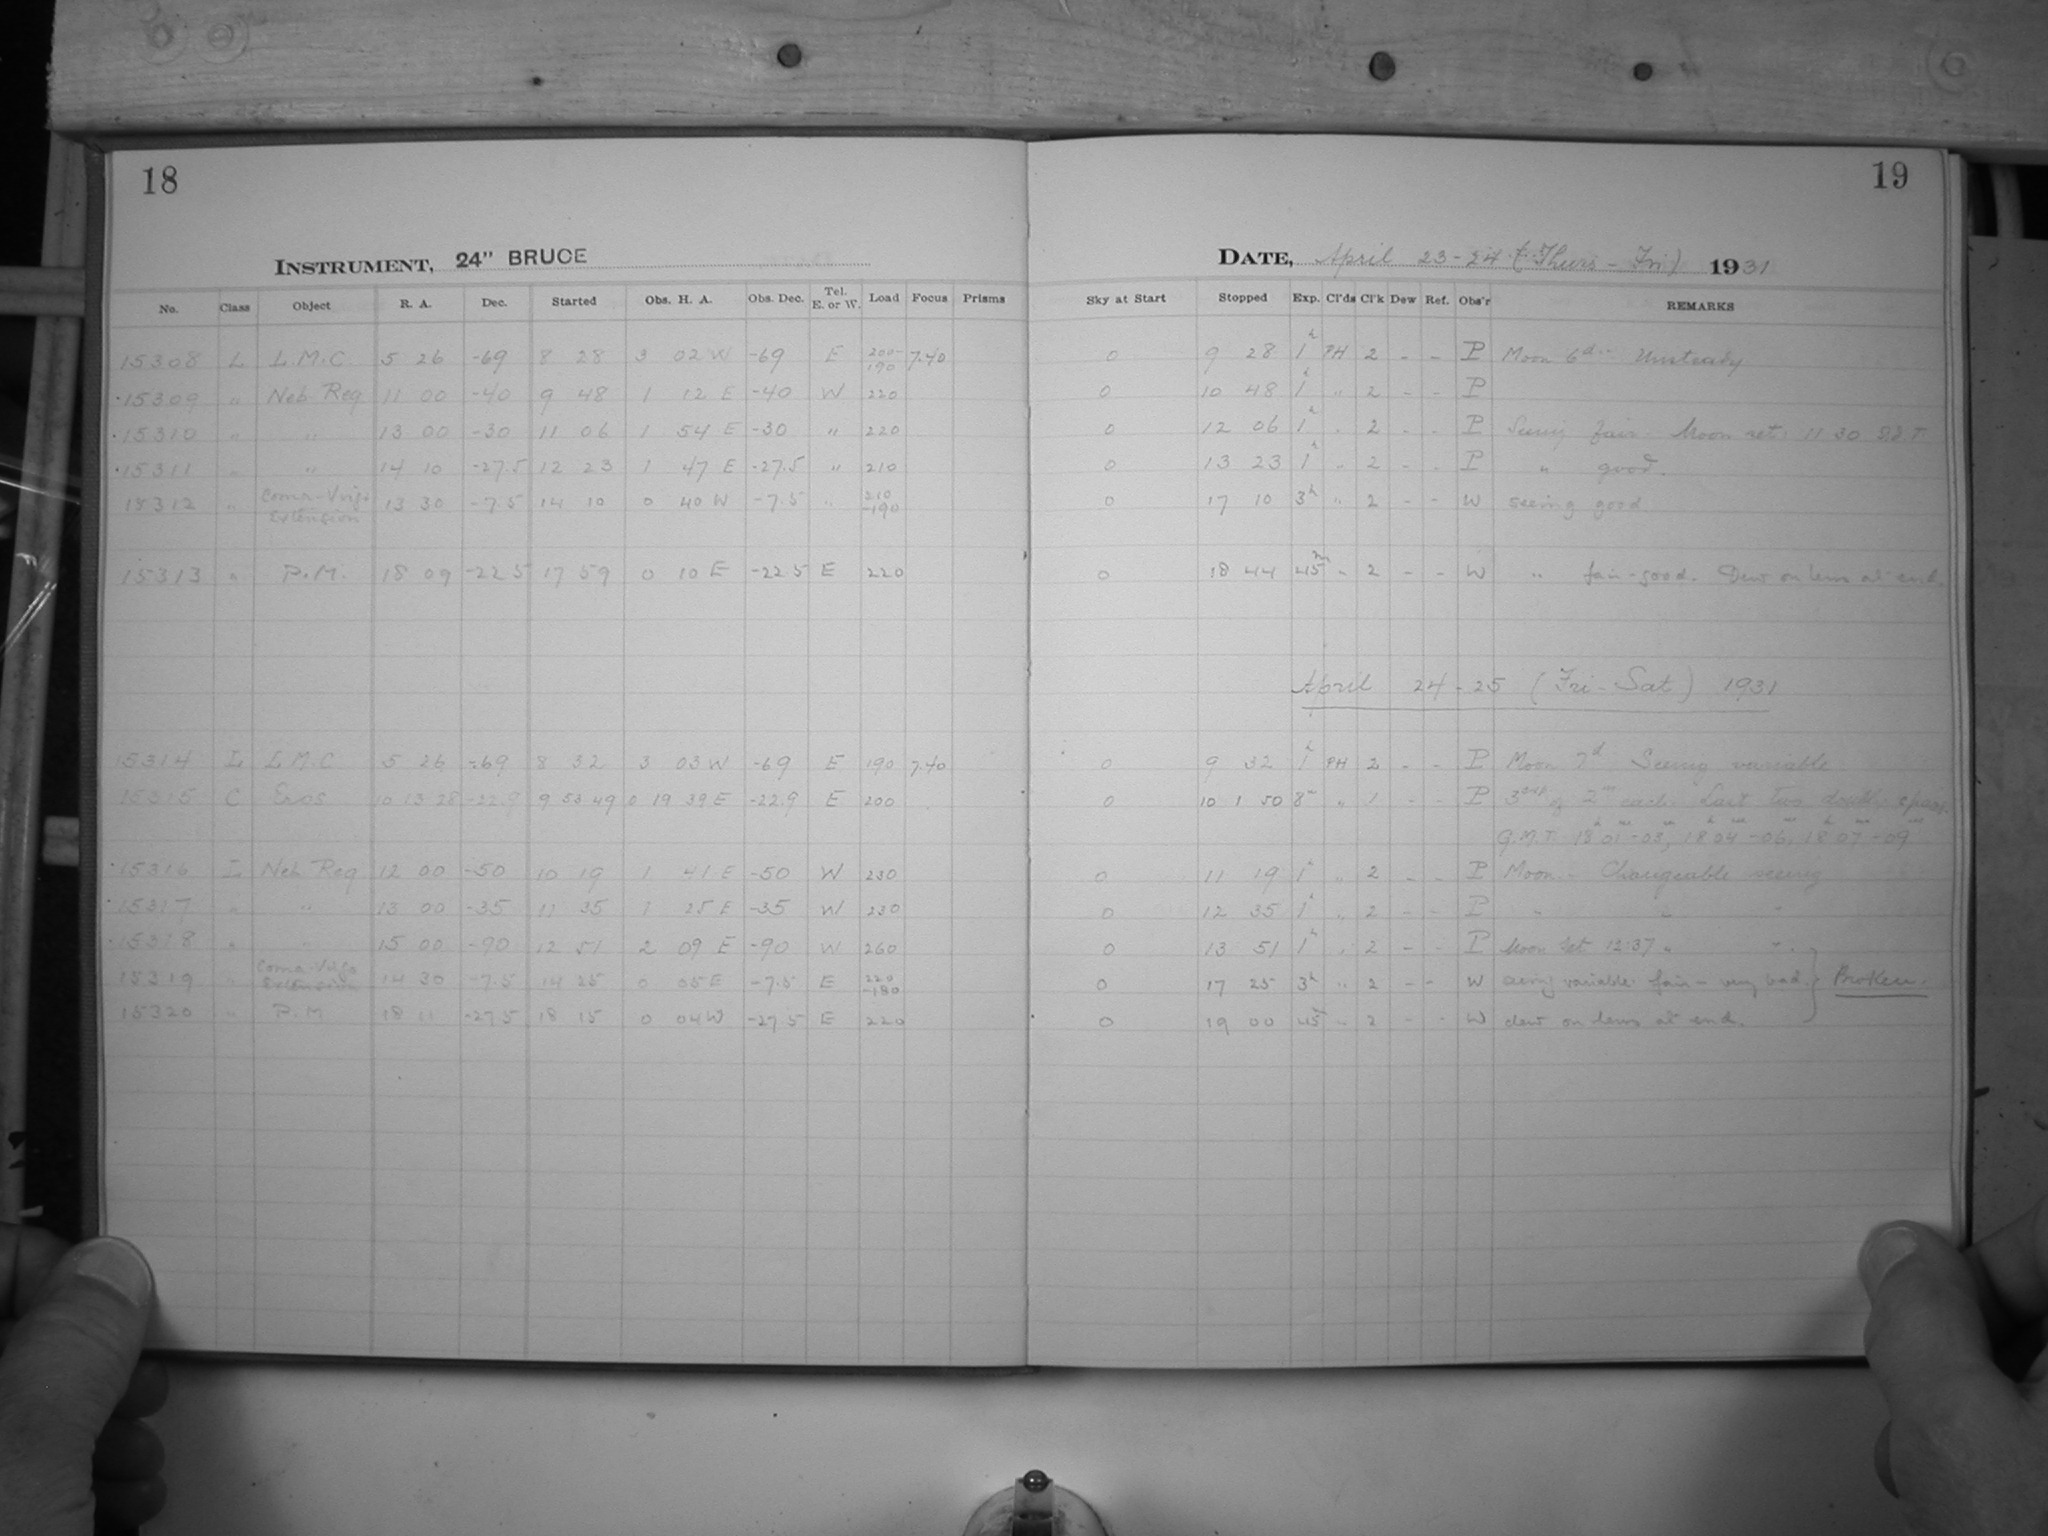 18
19
INSTRUMENT, 24" BRUCE
DATE, April 23-24 (Thurs - Fri) 1931
No. Class Object R. A. Dec. Started Obs. H. A. Obs. Dec. Tel. E. or W. Load Focus Prisms Sky at Start Stopped Exp. Cl'ds Cl'k Dew Ref. Obs'r REMARKS
15308 L L.M.C. 5 26 -69 8 28 3 02 W -69 E 200-190 7.40 0 9 28 1h PH 2 - - P Moon 6d. Unsteady
15309 " Neb Reg 11 00 -40 9 48 1 12 E -40 W 220 0 10 48 1h " 2 - - P
15310 " " 13 00 -30 11 06 1 54 E -30 " 220 0 12 06 1h " 2 - - P Seeing fair. Moon set. 11 30
15311 " " 14 10 -27.5 12 23 1 47 E -27.5 " 210 0 13 23 1h " 2 - - P " good.
15312 " Coma-Virgo Extension 13 30 -7.5 14 10 0 40 W -7.5 " 210-190 0 17 10 3h " 2 - - W seeing good.
15313 " P.M. 18 09 -22.5 17 59 0 10 E -22.5 E 220 0 18 44 45m " 2 - - W " fair-good. Dew on lens at end.
April 24-25 (Fri-Sat) 1931
15314 L L.M.C 5 26 -69 8 32 3 03 W -69 E 190 7.40 0 9 32 1h PH 2 - - P Moon 7d. Seeing variable
15315 C Eros 10 13 28 -22.9 9 53 49 0 19 39 E -22.9 E 200 0 10 1 50 8m " 1 - - P 3 exp of 2m each. Last two double space.
G.M.T. 18h 01m-03m, 18h 04m-06m, 18h 07m-09m
15316 L Neb Reg 12 00 -50 10 19 1 41 E -50 W 230 0 11 19 1h " 2 - - P Moon - Changeable seeing
15317 " " 13 00 -35 11 35 1 25 E -35 W 230 0 12 35 1h " 2 - - P " " "
15318 " " 15 00 -90 12 51 2 09 E -90 W 260 0 13 51 1h " 2 - - P Moon set 12:37 " "
15319 " Coma-Virgo Extension 14 30 -7.5 14 25 0 05 E -7.5 E 220-180 0 17 25 3h " 2 - - W seeing variable: fair - very bad. Broken.
15320 " P.M 18 11 -27.5 18 15 0 04 W -27.5 E 220 0 19 00 45m " 2 - - W dew on lens at end.